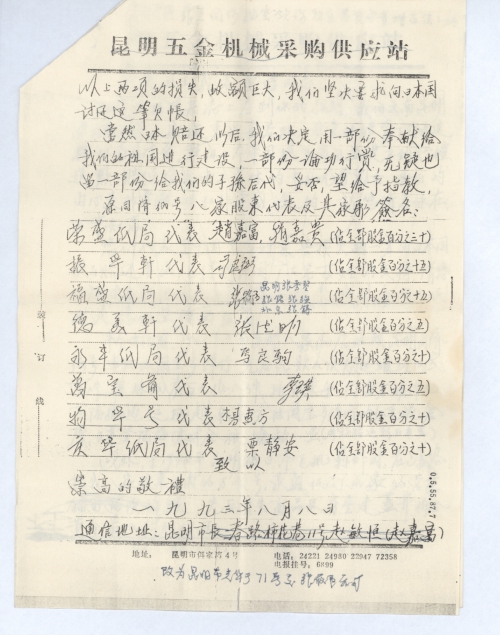 昆明五金机械采购供应站
以上两项的损失，数额巨大，我们坚决要求向日本国
讨还这笔欠帐，
当然日本赔还以后，我们决定用一部份奉献给
我们的祖国进行建设，一部份论功行赏，无疑也
留一部份给我们的子孫后代，妥否，望给予指教，
八家股东代表及其 签名：
荣盛纸局代表 赵嘉富，赵嘉贵（佔全部股金百分之二十）
振华轩代表（佔全部股金百分之五）
福盛纸局代表（佔全部股金百分之十五）
德美轩代表（佔全部股金百分之五）
永丰纸局代表（佔全部股金百分之十）
萬宝斋代表（佔全部股金百分之五）
物华号代表（佔全部股金百分之十）
庆华纸局代表 栗静安（佔全部股金百分之十）
致以
崇高的敬禮
一九九三年八月八日
通信地址：昆明市長春路 11号赵敏恒（赵嘉富）
地址： 昆明市 4号
电话：24221 24980 22947 72358
电报挂号：6899
改为昆明市 71号
订
线
0.5.55.87.7